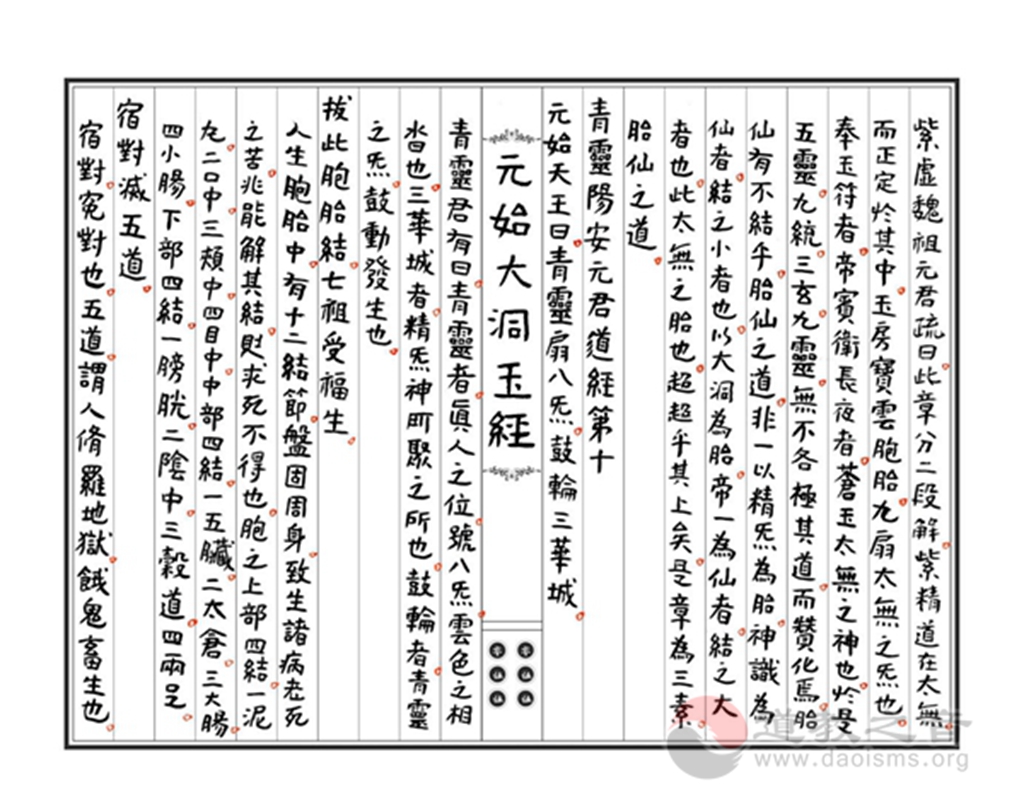 紫虛魏祖元君疏曰此章分二段解紫精道在太無
而正定於其中玉房寶雲胞胎九扇太無之炁也
奉玉符者帝賓衛長夜者蒼玉太無之神也於是
五靈九統三玄九靈無不各極其道而贊化焉胎
仙有不結乎胎仙之道非一以精炁為胎神識為
仙者結之小者也以大洞為胎帝一為仙者結之大
者也此太無之胎也超超乎其上矣是章為三素
胎仙之道
青靈陽安元君道經第十
元始天王曰青靈扇八炁鼓輪三華城
元始大洞玉經
青靈君有曰青靈者真人之位號八炁雲色之相
沓也三華城者精炁神所聚之所也鼓輪者青靈
之炁鼓動發生也
拔此胞胎結七祖受福生
人生胞胎中有十二結節盤固周身致生諸病老死
之苦兆能解其結則求死不得也胞之上部四結一泥
丸二口中三頰中四目中中部四結一五臟二太倉三大腸
四小腸下部四結一膀胱二陰中三穀道四兩足
宿對滅五道
宿對冤對也五道謂人脩羅地獄餓鬼畜生也
道教之音
www.daoisms.org